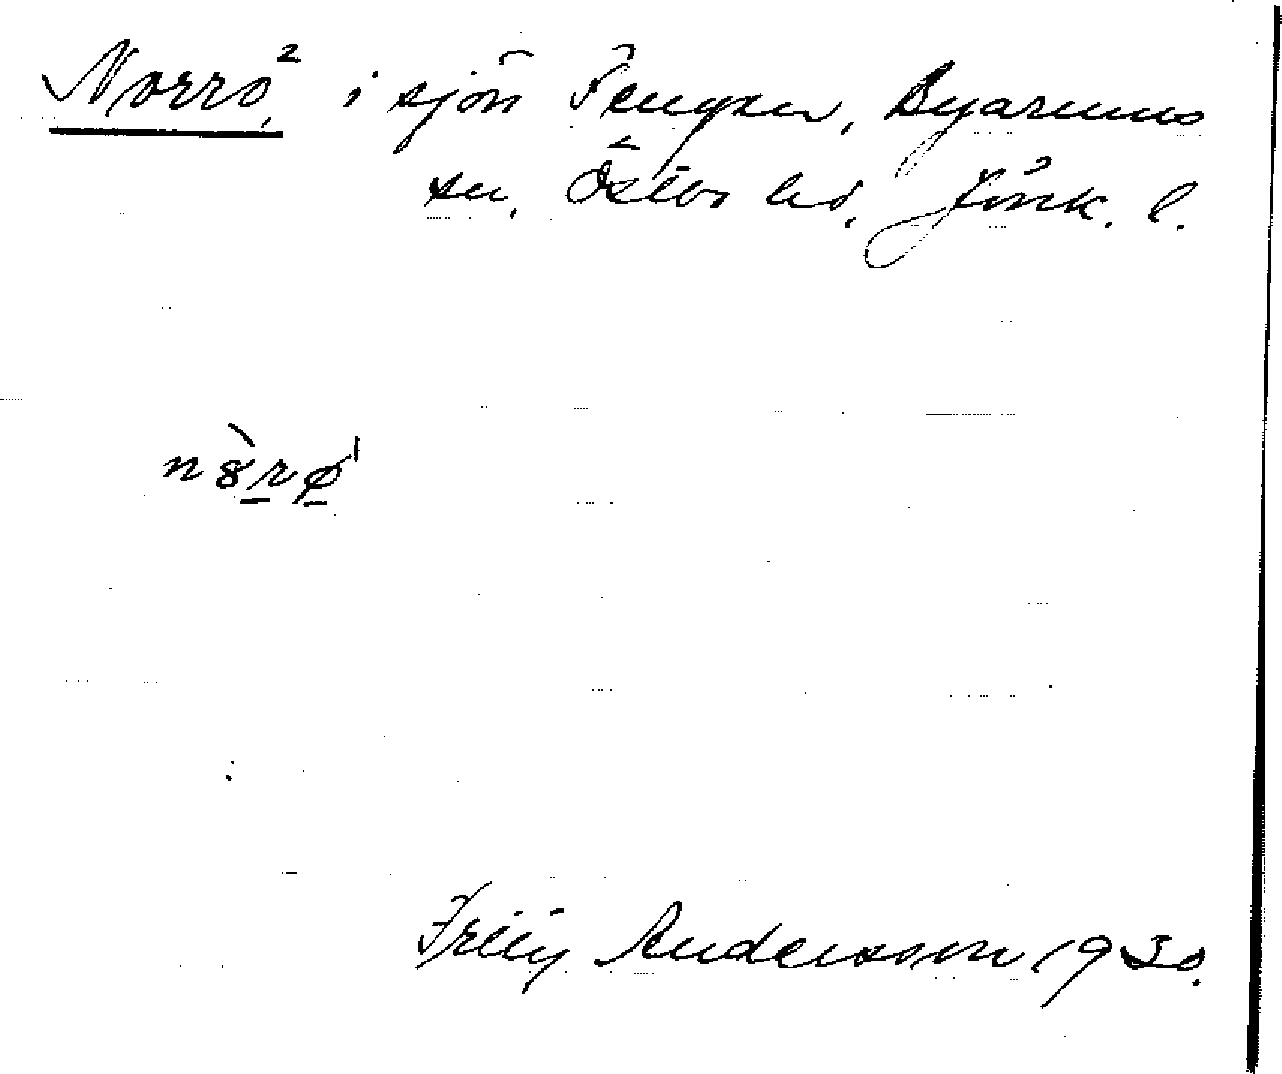 Norrö, i sjön Fengen, Byarums
sn, Östbo hd, Jönk. l.
Andersson 1930.